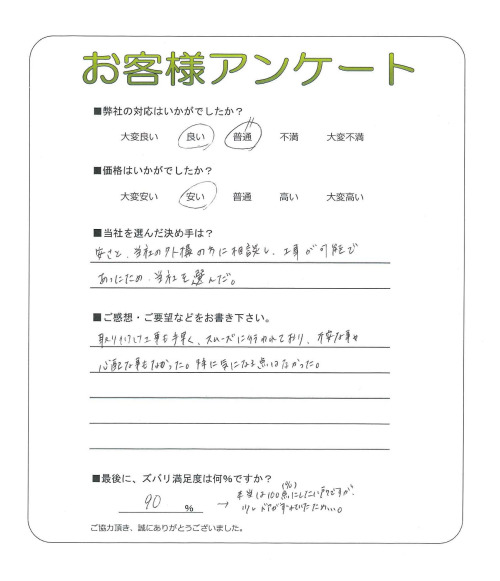 お客様アンケート
■弊社の対応はいかがでしたか?
大変良い 良い 普通 不満 大変不満
■価格はいかがでしたか?
大変安い 安い 普通 高い 大変高い
■当社を選んだ決め手は?
安さと、当社の外構の方に相談し、工事が可能で
あったため、当社を選んだ。
■ご感想・ご要望などをお書き下さい。
取り付け工事も手早く、スムーズに行われており、不安な事や
心配な事もなかった。特に気になる点はなかった。
■最後に、ズバリ満足度は何%ですか?
90 % → 本当は100点(%)にしたい所ですが、
少しドアが
ご協力頂き、誠にありがとうございました。